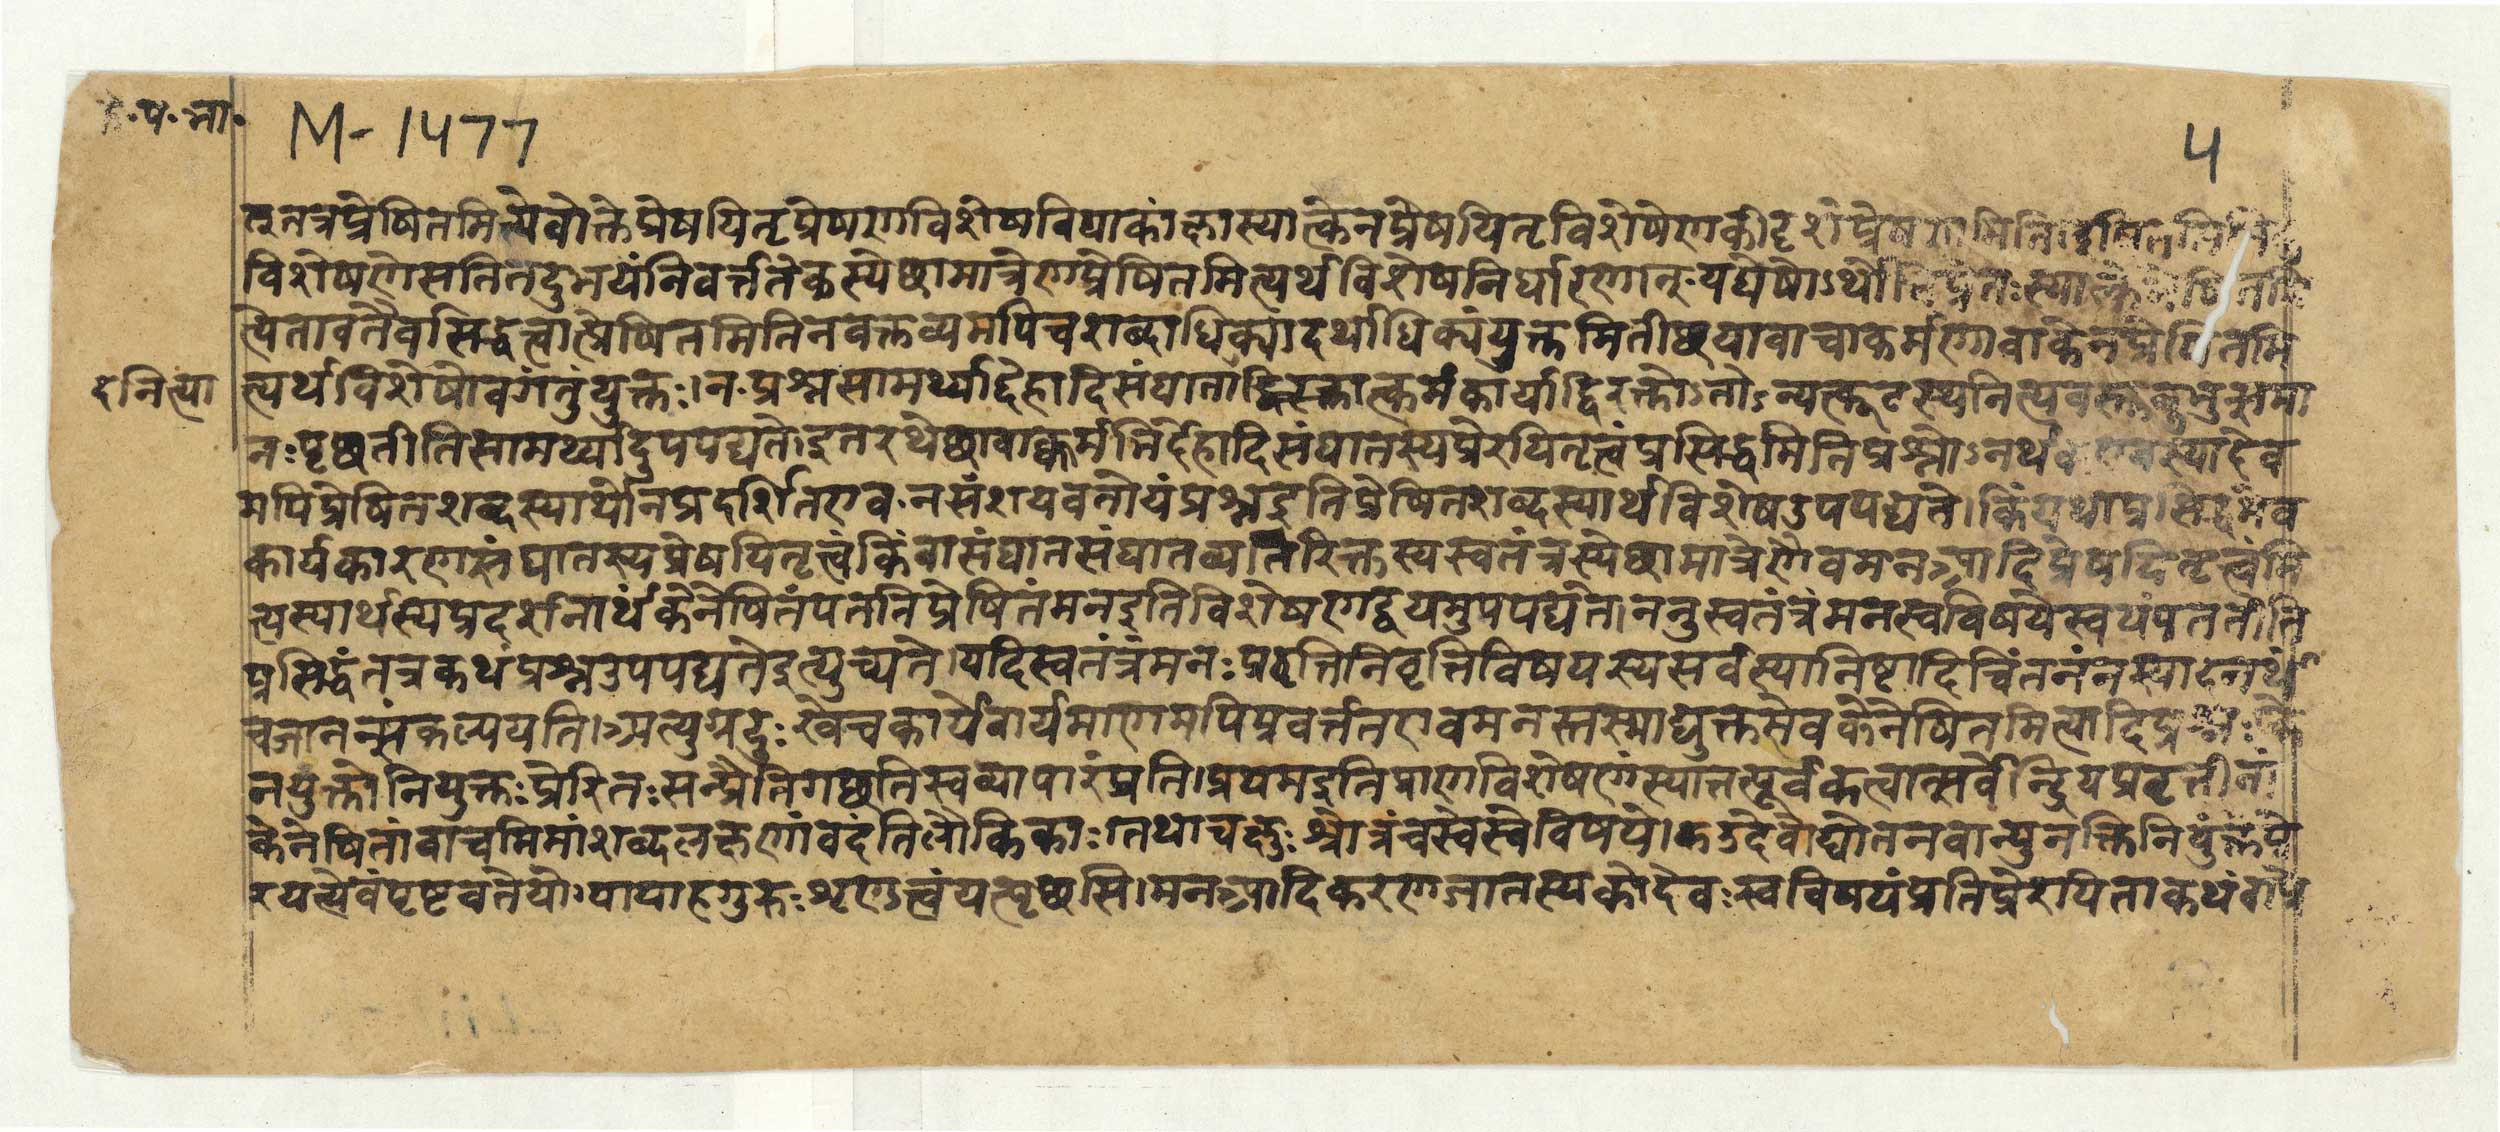 .प.भा.
M-1477
4
तुनत्रप्रेषितमित्येवोक्तेप्रेषयितृप्रेषणविशेषविषयाकांक्षास्यात्केनप्रेषयितृविशेषेणकीदृशंप्रेषणमिति
विशेषणेसतितदुभयंनिवर्त्ततेकस्येछामात्रेणप्रेषितमित्यर्थविशेषनिर्धारणात्.यद्येषोऽर्थोभिप्रेतःस्यात्
त्येतावतैवसिद्धत्वात्प्रेषितमितिनवक्तव्यमपिचशब्दाधिक्यादर्थाधिक्यंयुक्तमितीछयावाचाकर्मणावाकेनप्रेषितमि
देनित्या
त्यर्थविशेषोवगंतुंयुक्तः।न.प्रश्नसामर्थ्याद्देहादिसंघाताद्विरक्तात्कर्मकार्याद्विरक्तोऽतोऽन्यत्कूटस्थनित्यवस्तुबुभुत्समा
नःपृछतीतिसामर्थ्यादुपपद्यते।इतरथेछावाक्कर्मभिर्देहादिसंघातस्यप्रेरयितृत्वंप्रसिद्धमितिप्रश्नोऽनर्थकएवस्यादेव
मपिप्रेषितशब्दस्यार्थोनप्रदर्शितएव.नसंशयवतोयंप्रश्नइतिप्रेषितशब्दस्यार्थविशेषउपपद्यते।किंयथाप्रसिद्धमेव
कार्यकारणसंघातस्यप्रेषयितृत्वंकिंवासंघातसंघातव्यतिरिक्तस्यस्वतंत्रस्येछामात्रेणैवमनआदिप्रेषयितृत्वमि
त्यस्यार्थस्यप्रदर्शनार्थंकेनेषितंपततिप्रेषितंमनइतिविशेषणद्वयमुपपद्यते।ननुस्वतंत्रंमनस्वविषयेस्वयंपततीति
प्रसिद्धंतत्रकथंप्रश्नउपपद्यतेइत्युच्यते।यदिस्वतंत्रंमनःप्रवृत्तिनिवृत्तिविषयस्यसर्वस्यानिष्टादिचिंतनंनस्यादनर्थं
चजानन्संकल्पयति।अत्युग्रदुःखेचकार्येवार्यमाणमपिप्रवर्त्ततएवमनस्तस्माद्युक्तमेवकेनेषितमित्यादिप्रश्नः।के
नयुक्तोनियुक्तःप्रेरितःसन्प्रैतिगछतिस्वव्यापारंप्रति।प्रथमइतिप्राणविशेषणंस्यात्तत्पूर्वकत्वात्सर्वेन्द्रियप्रवृत्तीनां
केनेषितांवाचमिमांशब्दलक्षणांवदंतिलौकिकाः।तथाचक्षुःश्रोत्रंचस्वेस्वेविषये।कउदेवोद्योतनवान्युनक्तिनियुंक्तेप्रे
रयत्येवंपृष्टवतेयोग्यायाहगुरुःशृणुत्वंयत्पृछसि।मनआदिकरणजातस्यकोदेवःस्वविषयंप्रतिप्रेरयिताकथंवाप्रे